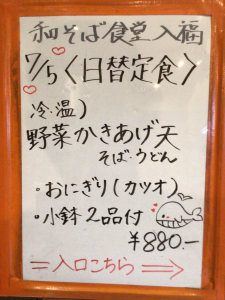 和そば食堂 入福
7/5〈日替定食〉
冷・温)
野菜かきあげ天
そば・うどん
・おにぎり(カツオ)
・小鉢2品付
¥880.-
=入口こちら⇒